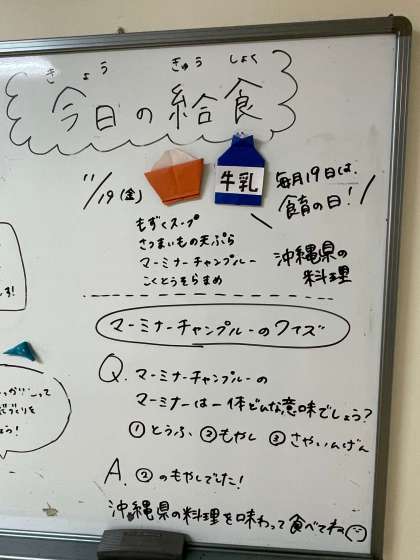 きょう きゅう しょく
今日の給食
11/19(金)
牛乳
毎月19日は、
食育の日!
もずくスープ
さつまいもの天ぷら
マーミナーチャンプルー
こくとうそらまめ
沖縄県の
料理
マーミナーチャンプルーのクイズ
Q. マーミナーチャンプルーの
マーミナーは一体どんな意味でしょう?
①とうふ ②もやし ③さやいんげん
A. ②のもやしでした!
沖縄県の料理を味わって食べてね